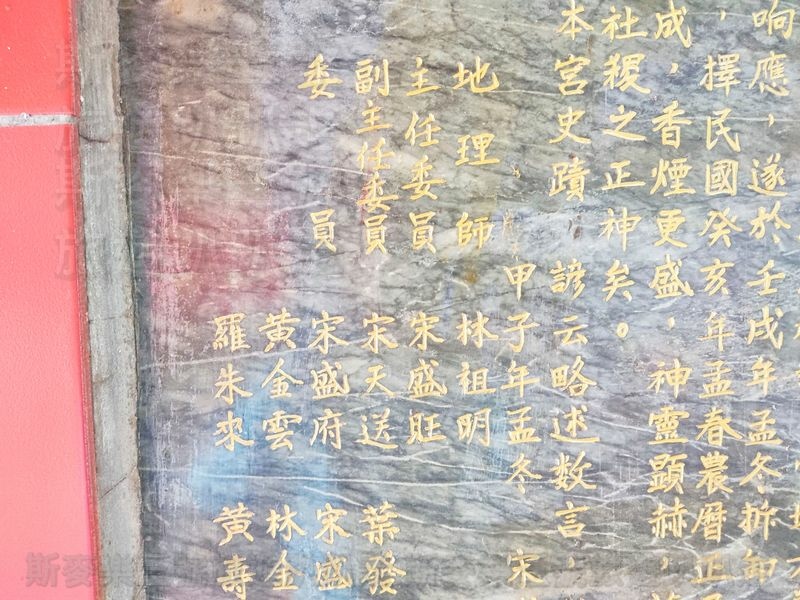 响應，遂於壬戌年孟冬拆卸
，擇民國癸亥年孟春農曆正
成，香煙更盛，神靈顯赫，
社稷之正神矣。
本宮史蹟　諺云略述数言，
甲子年孟冬　宋
地理師　林祖明
主任委員　宋盛旺
副主任委員　宋天送　葉發
委員　宋盛府　宋盛
黃金雲　林金
羅朱來　黃壽